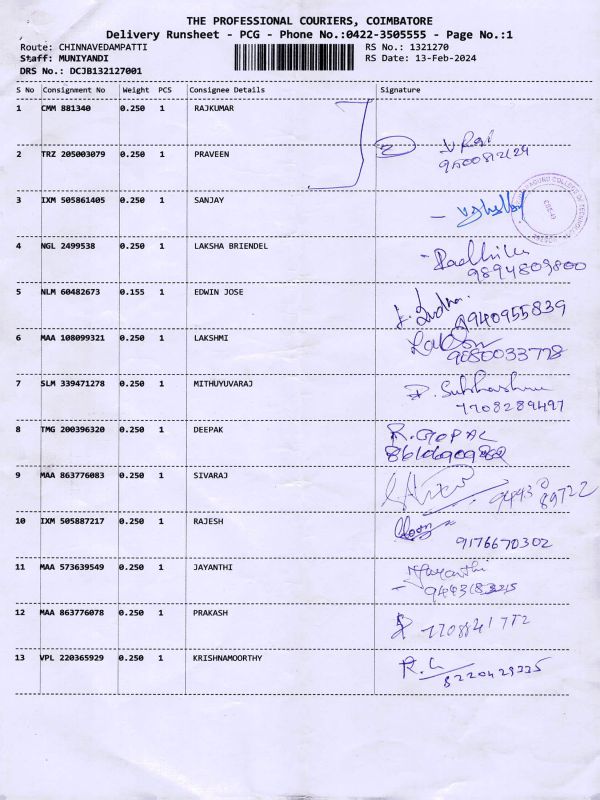 THE PROFESSIONAL COURIERS, COIMBATORE
Delivery Runsheet - PCG - Phone No.:0422-3505555 - Page No.:1
Route: CHINNAVEDAMPATTI RS No.: 1321270
Staff: MUNIYANDI RS Date: 13-Feb-2024
DRS No.: DCJB132127001
S No Consignment No Weight PCS Consignee Details Signature
1 CMM 881340 0.250 1 RAJKUMAR
2 TRZ 205003079 0.250 1 PRAVEEN 2
3 IXM 505861405 0.250 1 SANJAY
4 NGL 2499538 0.250 1 LAKSHA BRIENDEL
9894809800
5 NLM 60482673 0.155 1 EDWIN JOSE
9940955839
6 MAA 108099321 0.250 1 LAKSHMI
7 SLM 339471278 0.250 1 MITHUYUVARAJ
7708289497
8 TMG 200396320 0.250 1 DEEPAK R.GOPAL
9 MAA 863776083 0.250 1 SIVARAJ
10 IXM 505887217 0.250 1 RAJESH
9176670302
11 MAA 573639549 0.250 1 JAYANTHI
12 MAA 863776078 0.250 1 PRAKASH
13 VPL 220365929 0.250 1 KRISHNAMOORTHY
8220429335